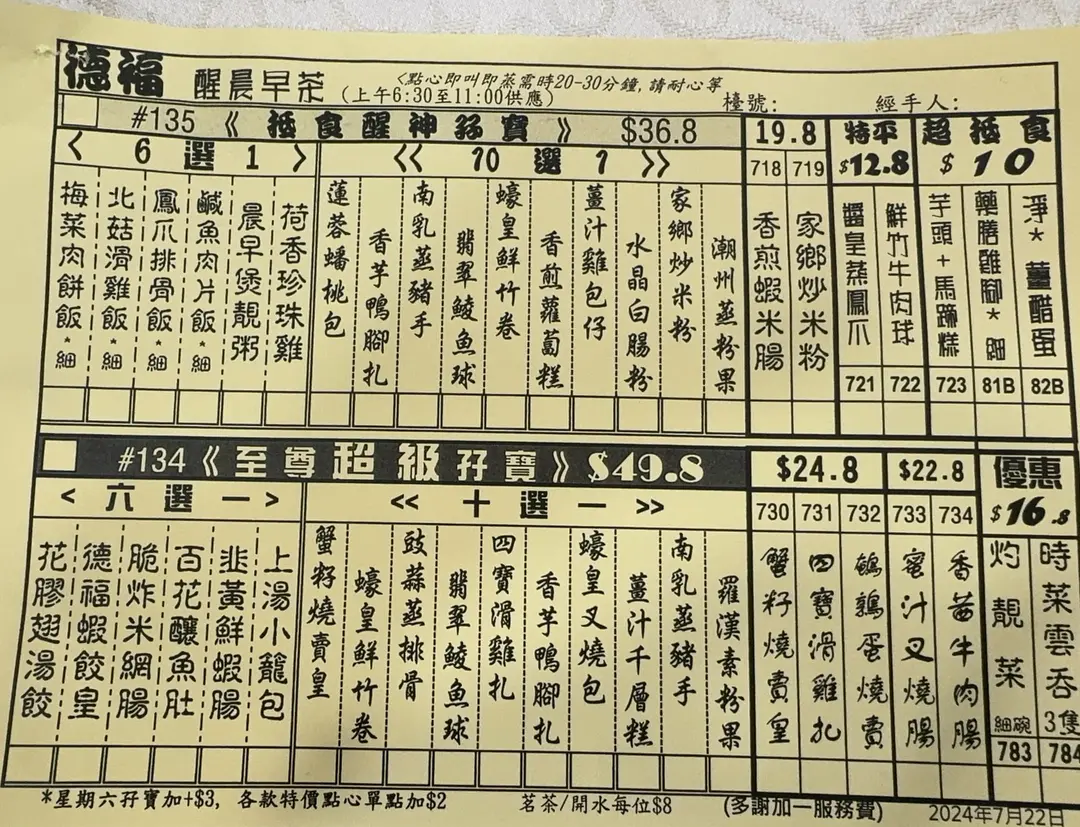 德福 醒晨早茶 <點心即叫即蒸需時20-30分鐘,請耐心等
(上午6:30至11:00供應) 檯號: 經手人:
#135 《 抵食醒神孖寶 》 $36.8
< 6 選 1 >
梅菜肉餅飯*細
北菇滑雞飯*細
鳳爪排骨飯*細
鹹魚肉片飯*細
晨早煲靚粥
荷香珍珠雞
<< 10 選 1 >>
蓮蓉蟠桃包
香芋鴨腳扎
南乳蒸豬手
翡翠鯪魚球
蠔皇鮮竹卷
香煎蘿蔔糕
薑汁雞包仔
水晶白腸粉
家鄉炒米粉
潮州蒸粉果
19.8
718 香煎蝦米腸
719 家鄉炒米粉
特平 $12.8
醬皇蒸鳳爪 721
鮮竹牛肉球 722
超抵食 $10
芋頭+馬蹄糕 723
藥膳雞腳*細 81B
淨*薑醋蛋 82B
#134《至尊超級孖寶》$49.8
< 六 選 一 >
花膠翅湯餃
德福蝦餃皇
脆炸米網腸
百花釀魚肚
韭黃鮮蝦腸
上湯小籠包
<< 十 選 一 >>
蟹籽燒賣皇
蠔皇鮮竹卷
豉蒜蒸排骨
翡翠鯪魚球
四寶滑雞扎
香芋鴨腳扎
蠔皇叉燒包
薑汁千層糕
南乳蒸豬手
羅漢素粉果
$24.8
730 蟹籽燒賣皇
731 四寶滑雞扎
732 鵪鶉蛋燒賣
$22.8
733 蜜汁叉燒腸
734 香茜牛肉腸
優惠 $16.8
灼靚菜 細碗 783
時菜雲吞3隻 784
*星期六孖寶加+$3, 各款特價點心單點加$2 茗茶/開水每位$8 (多謝加一服務費) 2024年7月22日